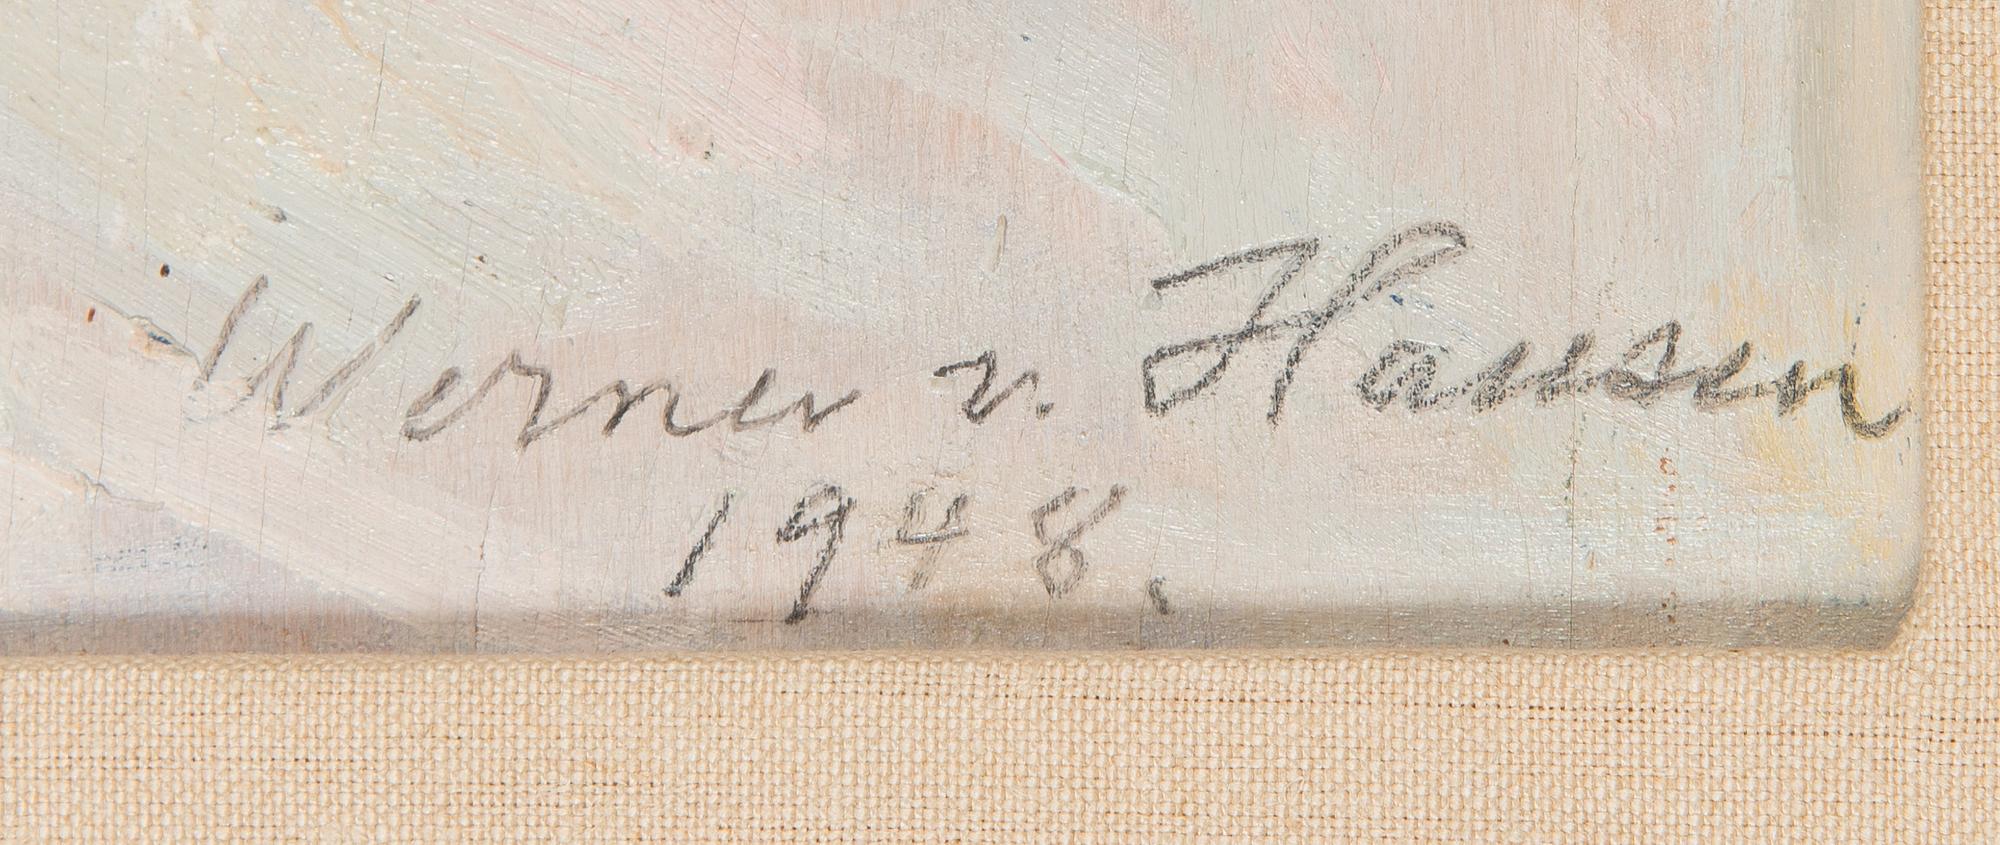 Werner v. Hausen
1948.